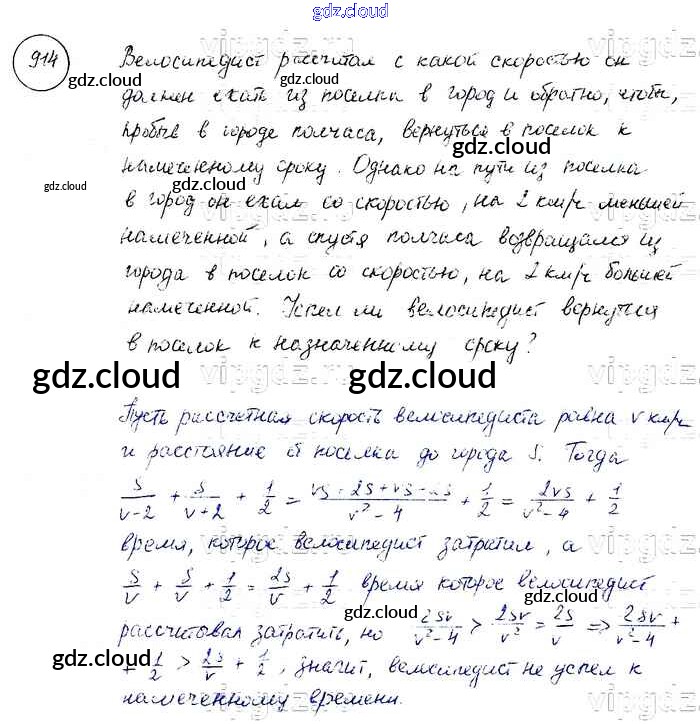 gdz.cloud
914
Велосипедист рассчитал с какой скоростью он
gdz.cloud
должен ехать из поселка в город и обратно, чтобы,
gdz.cloud
пробыв в городе полчаса, вернуться в поселок к
gdz.cloud
намеченному сроку. Однако на пути из поселка
gdz.cloud gdz.cloud
в город он ехал со скоростью, на 2 км/ч меньшей
намеченной, а спустя полчаса возвращался из
города в поселок со скоростью, на 2 км/ч большей
намеченной. Успел ли велосипедист вернуться
в поселок к назначенному сроку?
gdz.cloud gdz.cloud
Пусть рассчетная скорость велосипедиста равна v км/ч
и расстояние от поселка до города S. Тогда
S/(v-2) + S/(v+2) + 1/2 = (vS+2S+vS-2S)/(v²-4) + 1/2 = 2vS/(v²-4) + 1/2
время, которое велосипедист затратил, а
gdz.cloud
S/v + S/v + 1/2 = 2S/v + 1/2 время которое велосипедист
gdz.cloud gdz.cloud
рассчитывал затратить, но 2Sv/(v²-4) > 2Sv/v² = 2S/v ⇒ 2Sv/(v²-4) +
+ 1/2 > 2S/v + 1/2, значит, велосипедист не успел к
gdz.cloud gdz.cloud
намеченному времени.